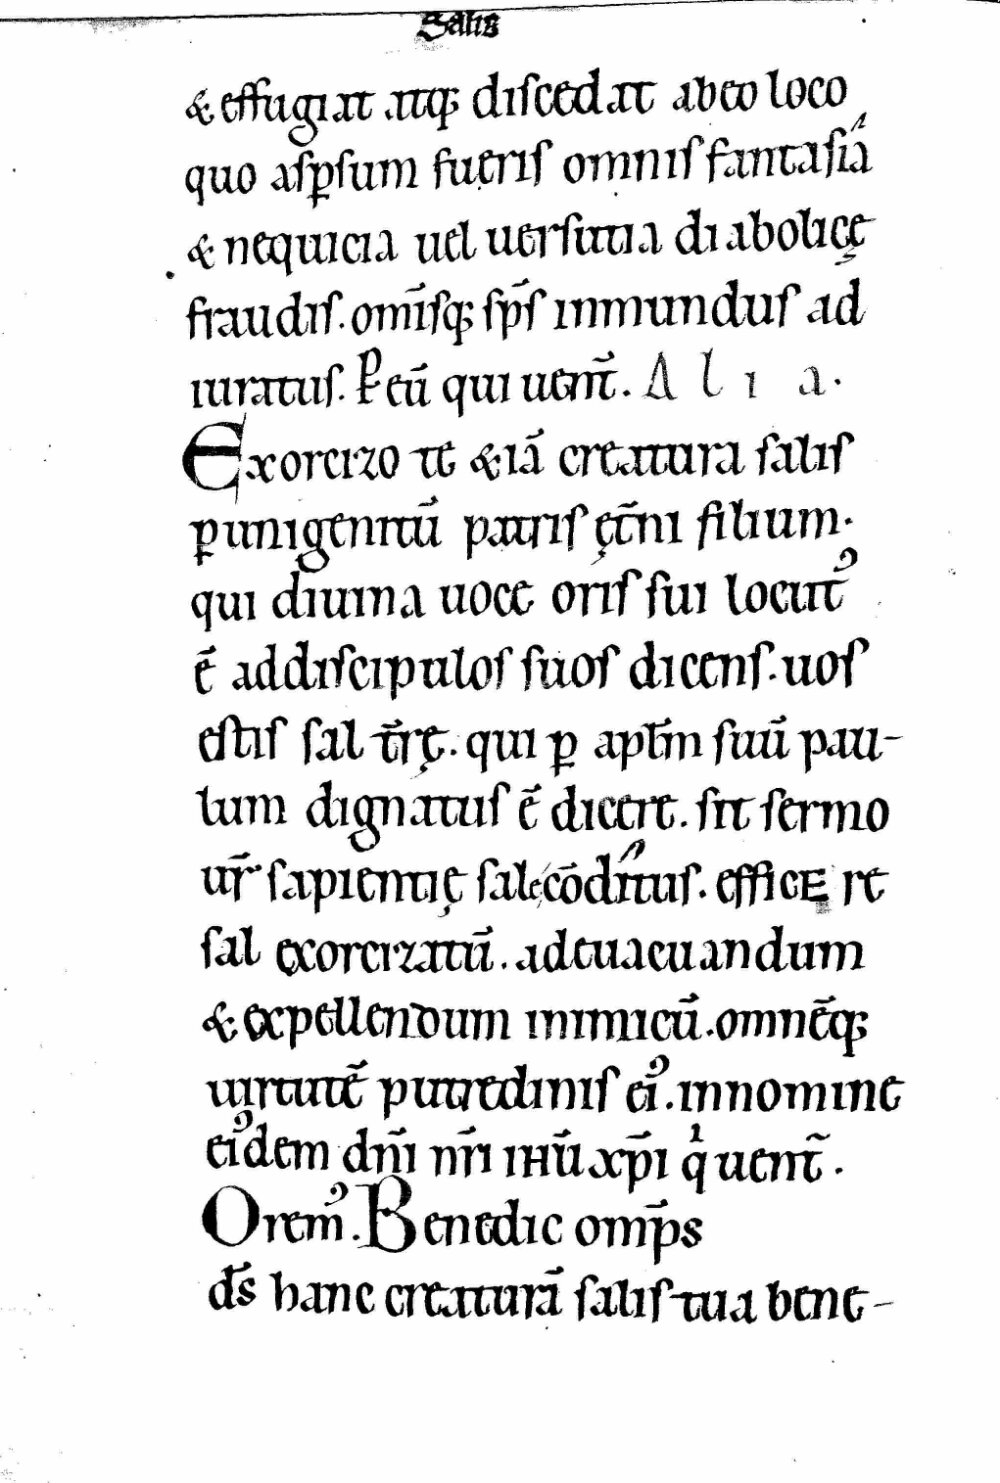 Salis
& effugiat atq; diſcedat ab eo loco
quo aſꝑſum fueriſ omniſ fantaſia
& nequicia uel uerſutia diabolicę
fraudiſ. om̄iſq; ſp̄ſ inmunduſ ad
iuratuſ. P eū qui uent̄. Alia.
Exorcizo te &iā creatura ſaliſ
ꝑ unigenitū patriſ ęt̄ni filium.
qui diuina uoce oriſ ſui locut᾽
ē ad diſcipuloſ ſuoſ dicenſ. uoſ
eſtiſ ſal t̄rę. qui ꝑ aptl̄m ſuū pau-
lum dignatuſ ē dicere. ſit ſermo
ur̄ ſapientię ſale cōdituſ. efficEre
ſal exorcizatū. ad euacuandum
& expellendum inimicū. omnēq;
uirtutē putrediniſ ei᾽. in nomine
ei᾽dem dn̄i nr̄i ihū xp̄i qͥ uent̄.
Orem᾽. Benedic omp̄s
d̄s hanc creaturā ſaliſ tua bene-